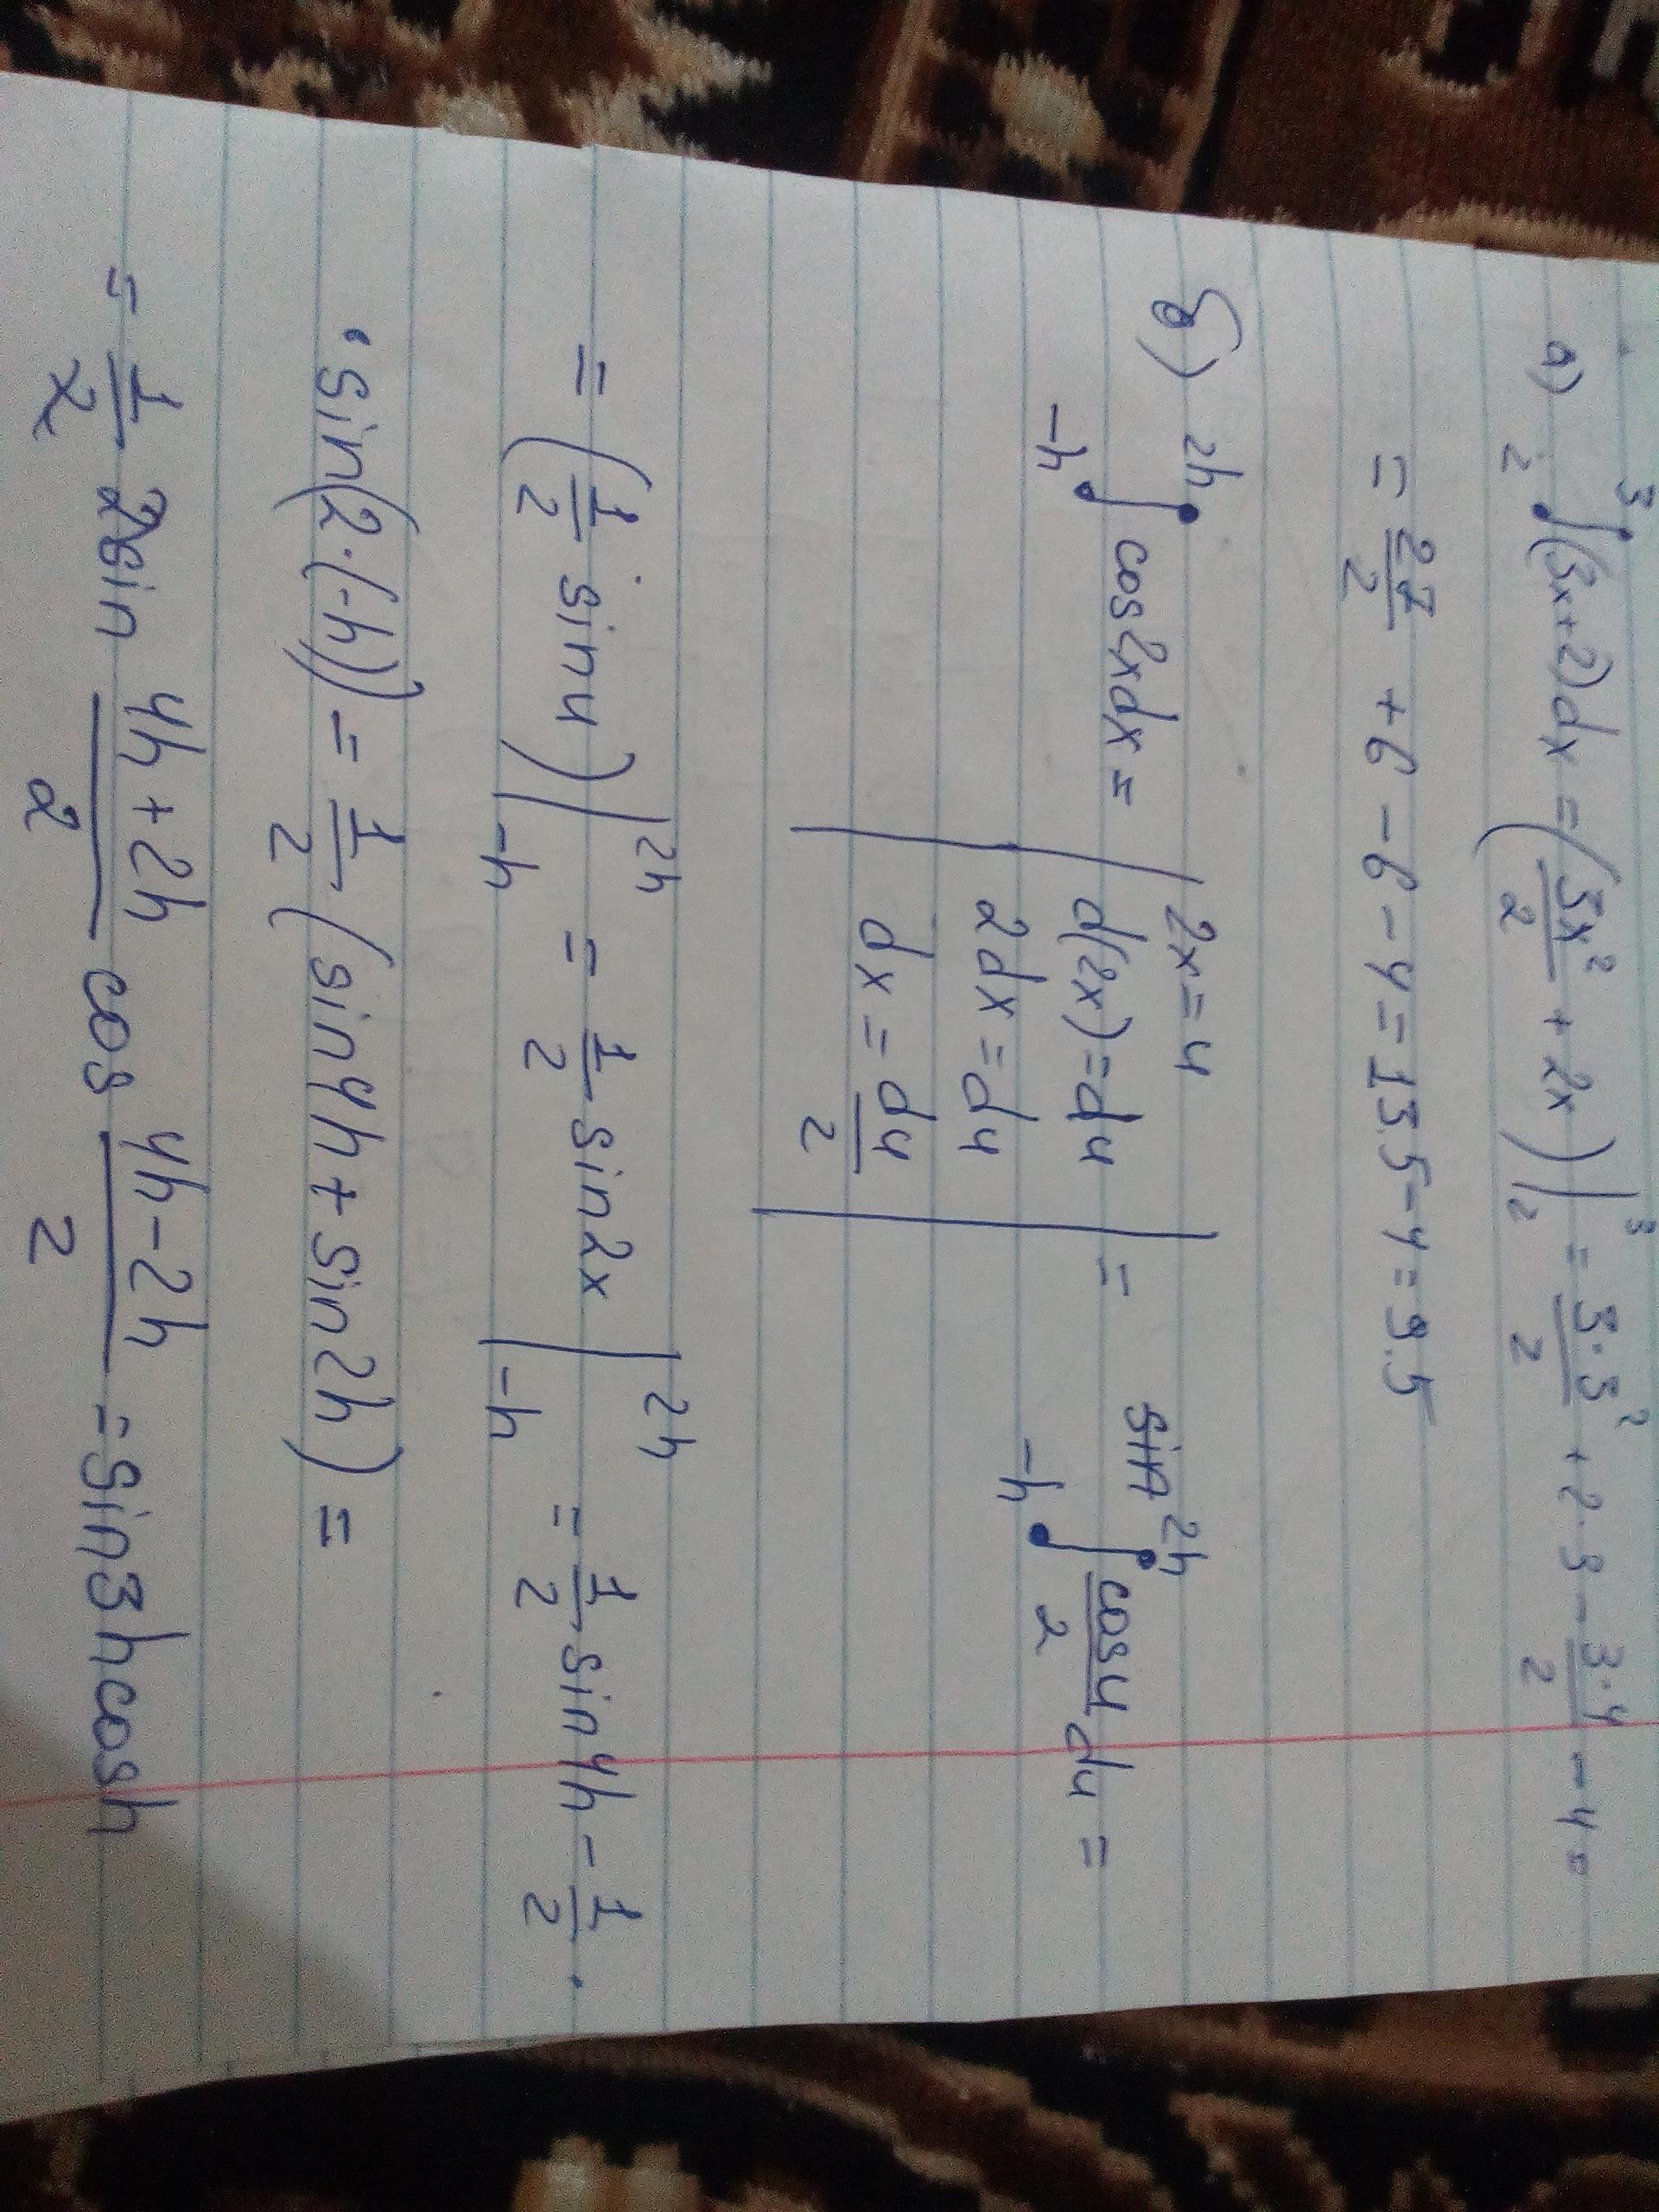 а) ₂∫³(3x+2)dx = (3x²/2 + 2x)|₂³ = 3·3²/2 + 2·3 - 3·4/2 - 4 =
= 27/2 + 6 - 6 - 4 = 13.5 - 4 = 9.5
б) -h∫2h cos2xdx = | 2x = u
d(2x) = du
2dx = du
dx = du/2 | = -h∫2h cosu/2 du =
= (1/2 sinu)|-h 2h = 1/2 sin2x|-h 2h = 1/2 sin4h - 1/2 ·
· sin(2·(-h)) = 1/2 (sin4h + sin2h) =
= 1/2 2sin 4h+2h/2 cos 4h-2h/2 = sin3hcosh